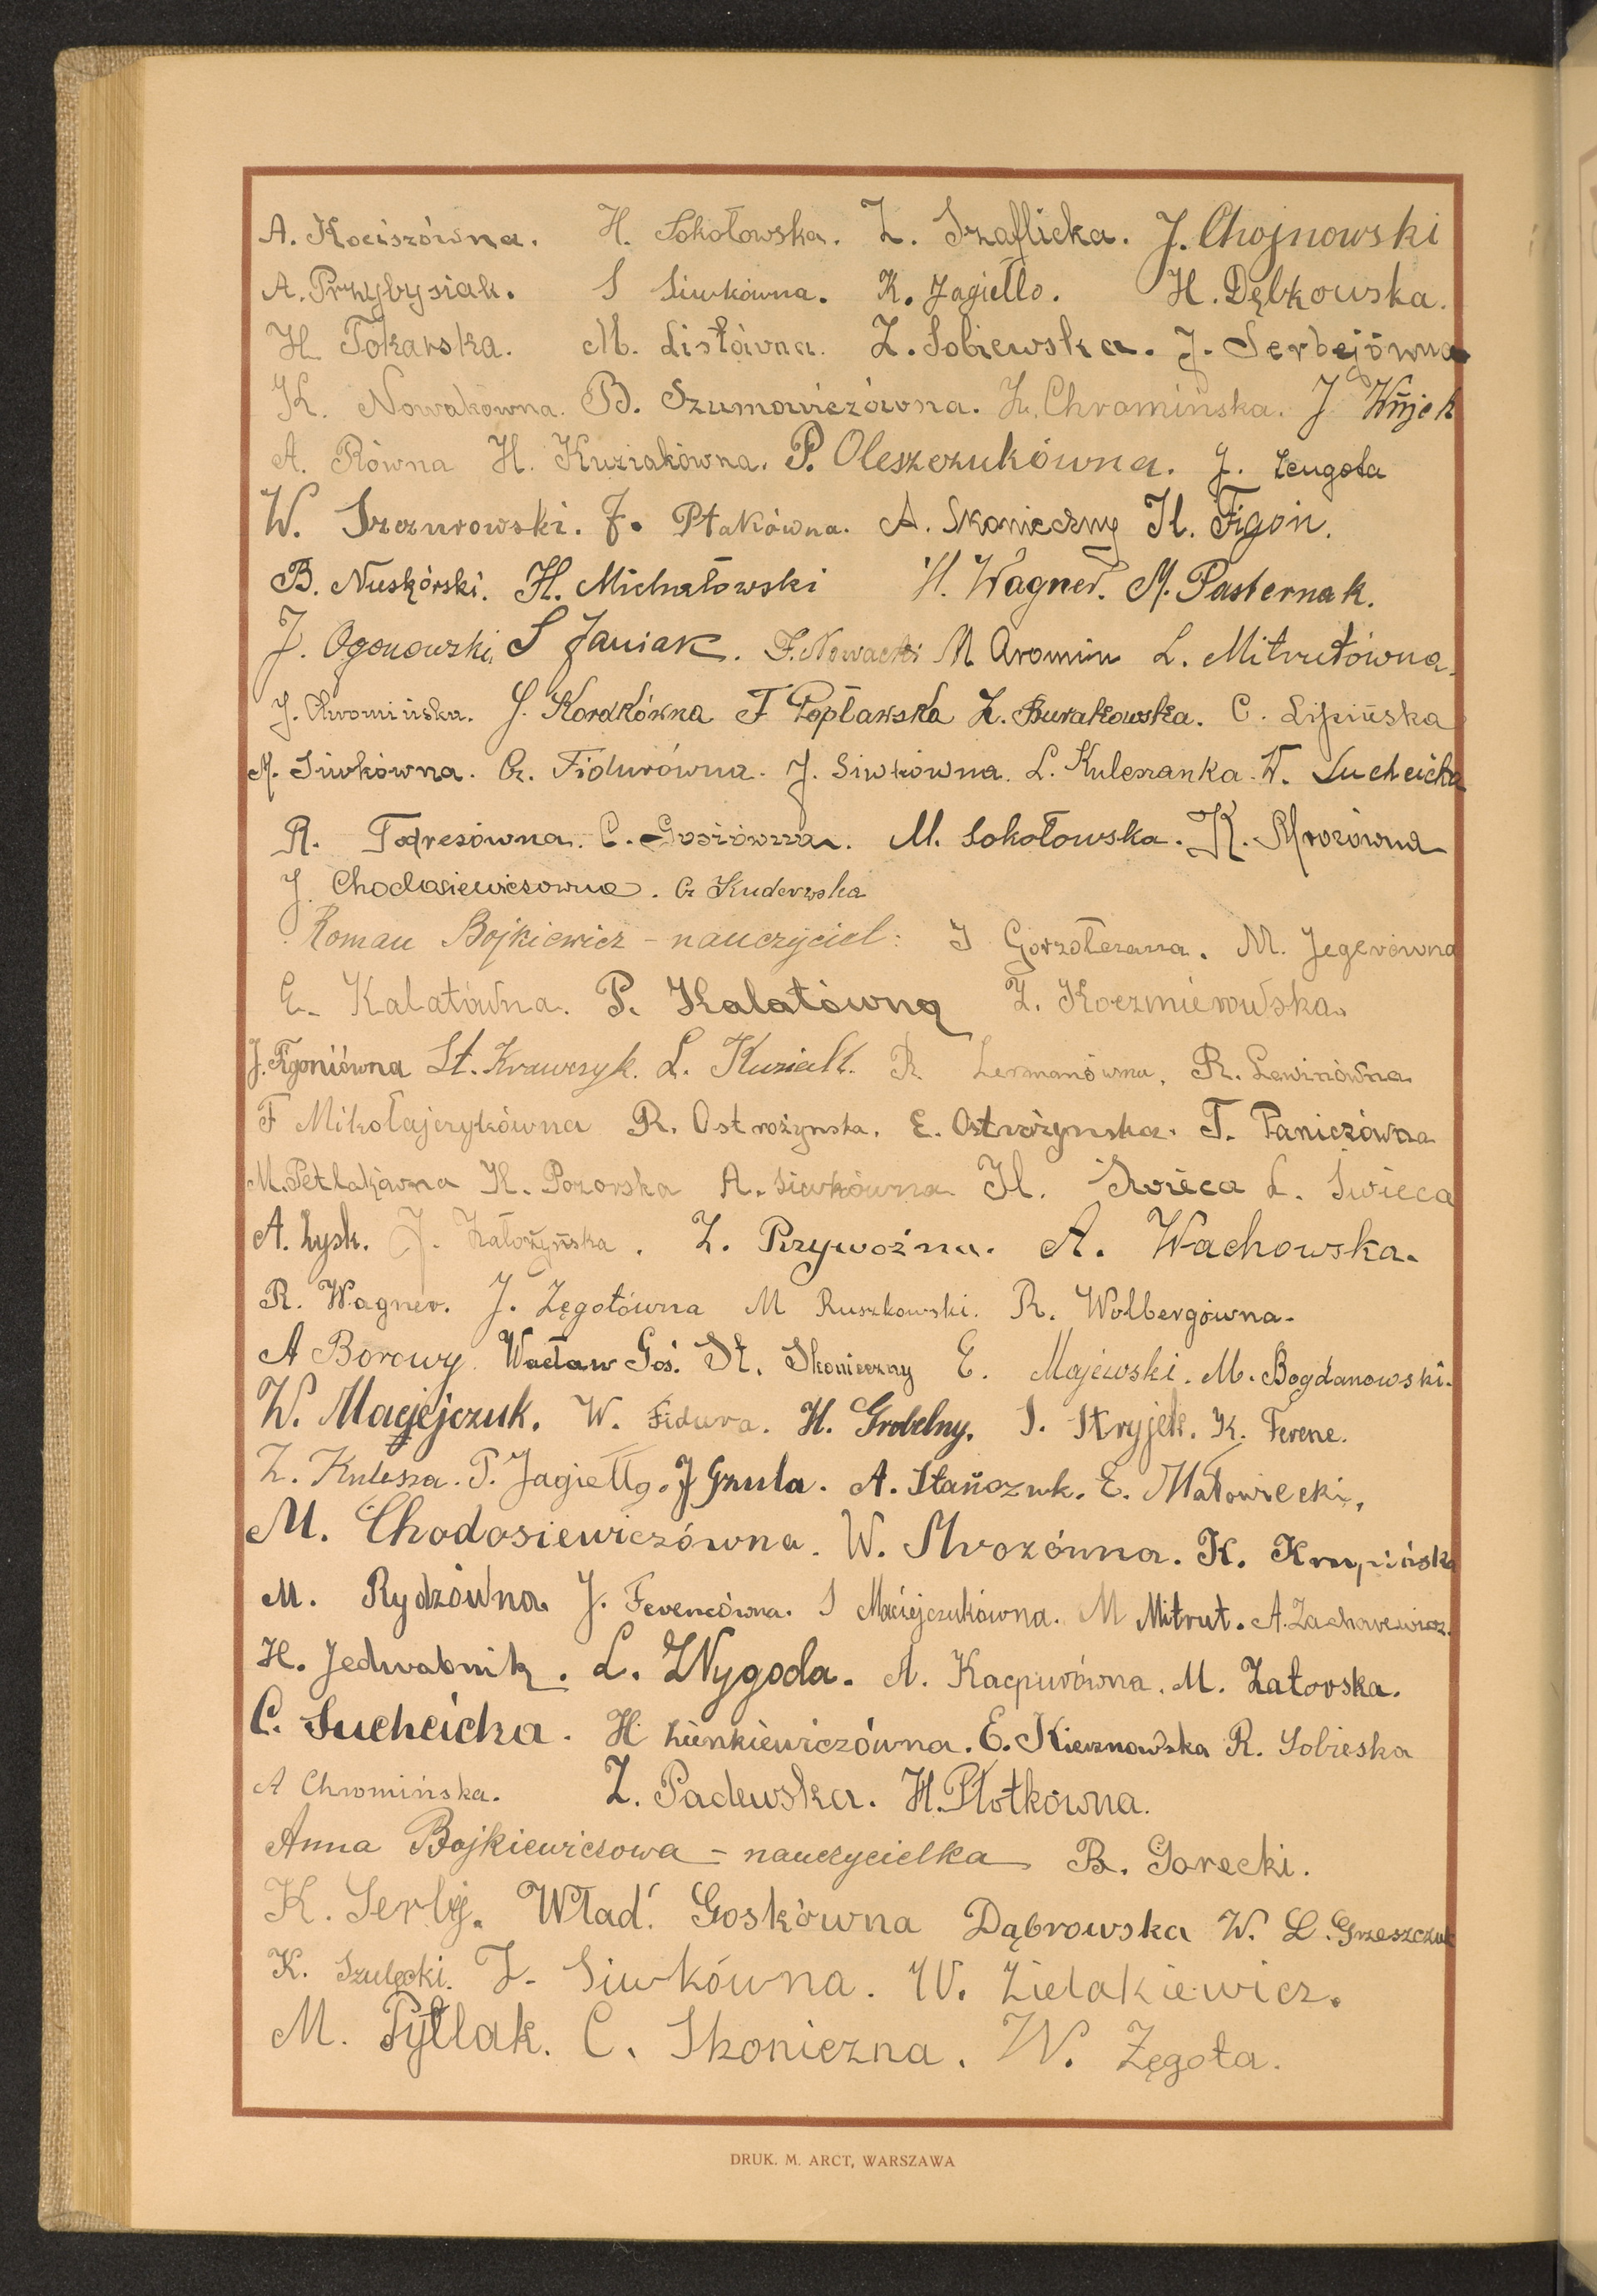 A. Kociszówna. H. Sokołowska. Z. Szaflicka. J. Chojnowski
A. Przybysiak. S Siwkówna. K. Jagiełło. H. Dębkowska.
H Tokarska. M. Listówna. Z. Sobiewska. J. Serbejówna
K. Nowakówna. B. Szumowiczówna. H. Chromińska. J. Wójek
A. Równa H. Kuziakówna. P. Oleszczukówna. J. Żengota
W. Szczurowski. F. Ptakówna. A. Skonieczny H. Figon.
B. Nuskórski. H. Michałowski H. Wagner. M. Pasternak.
J. Ogonowski, S Janiak. F. Nowacki M Aromin L. Mitrutówna
J. Chromińska. J. Kordkówna F Popławska Z. Burakowska. C. Lipińska
M. Siwkówna. Cz. Fidurówna. J. Siwkówna. L. Kuleszanka. W. Suchcicka
R. Todresówna. C. Gosiówna. M. Sokołowska. K. Mrozówna
J. Chodasiewiczowna. Cz Kuderwska
Roman Bojkiewicz – nauczyciel: J Gorzołczana. M. Jegerówna
E. Kalatówna. P. Kalatówna Z. Koczmierowska.
J. Figoniówna St. Krawczyk. L. Kuziak. R. Lermanówna. R. Lewinówna
F Mikołajczykówna R. Ostrożyńska. E. Ostrożyńska. T. Paniczówna
M. Petlakówna K. Pozorska A. Siwkówna H. Świeca L. Świeca
A. Łysk. J. Załozyńska. Z. Przywoźna. A. Wachowska.
R. Wagner. J. Zęgotówna M Ruszkowski. R. Wolbergówna.
A Borowy. Wacław Goś. St. Skonieczny E. Majewski. M. Bogdanowski.
W. Maciejczuk. W. Fidura. H. Grobelny. S. Stryjek. K. Ferenc.
Z. Kulesza. P. Jagiełło. J Gzula. A. Stańczuk. E. Małowiecki,
M. Chodosiewiczówna. W. Mrozówna. K. Krupińska
M. Rydzówna J. Ferencówna. S Maciejczukówna. M Mitrut. A. Zacharewicz.
H. Jedwabnik. L. Wygoda. A. Kacpurówna. M. Zatorska.
C. Suchcicka. H. Linkiewiczówna. E. Kiernowska R. Sobieska
A Chromińska. Z. Padewska. H. Płotkówna.
Anna Bojkiewiczowa – nauczycielka B. Gorecki.
K. Serbij. Wład. Goskówna Dąbrowska W. L. Grzeszczuk
K. Szulęcki. J. Siwkówna. W. Zielakiewicz.
M. Pytlak. C. Skonieczna. W. Zęgota.
DRUK. M. ARCT, WARSZAWA